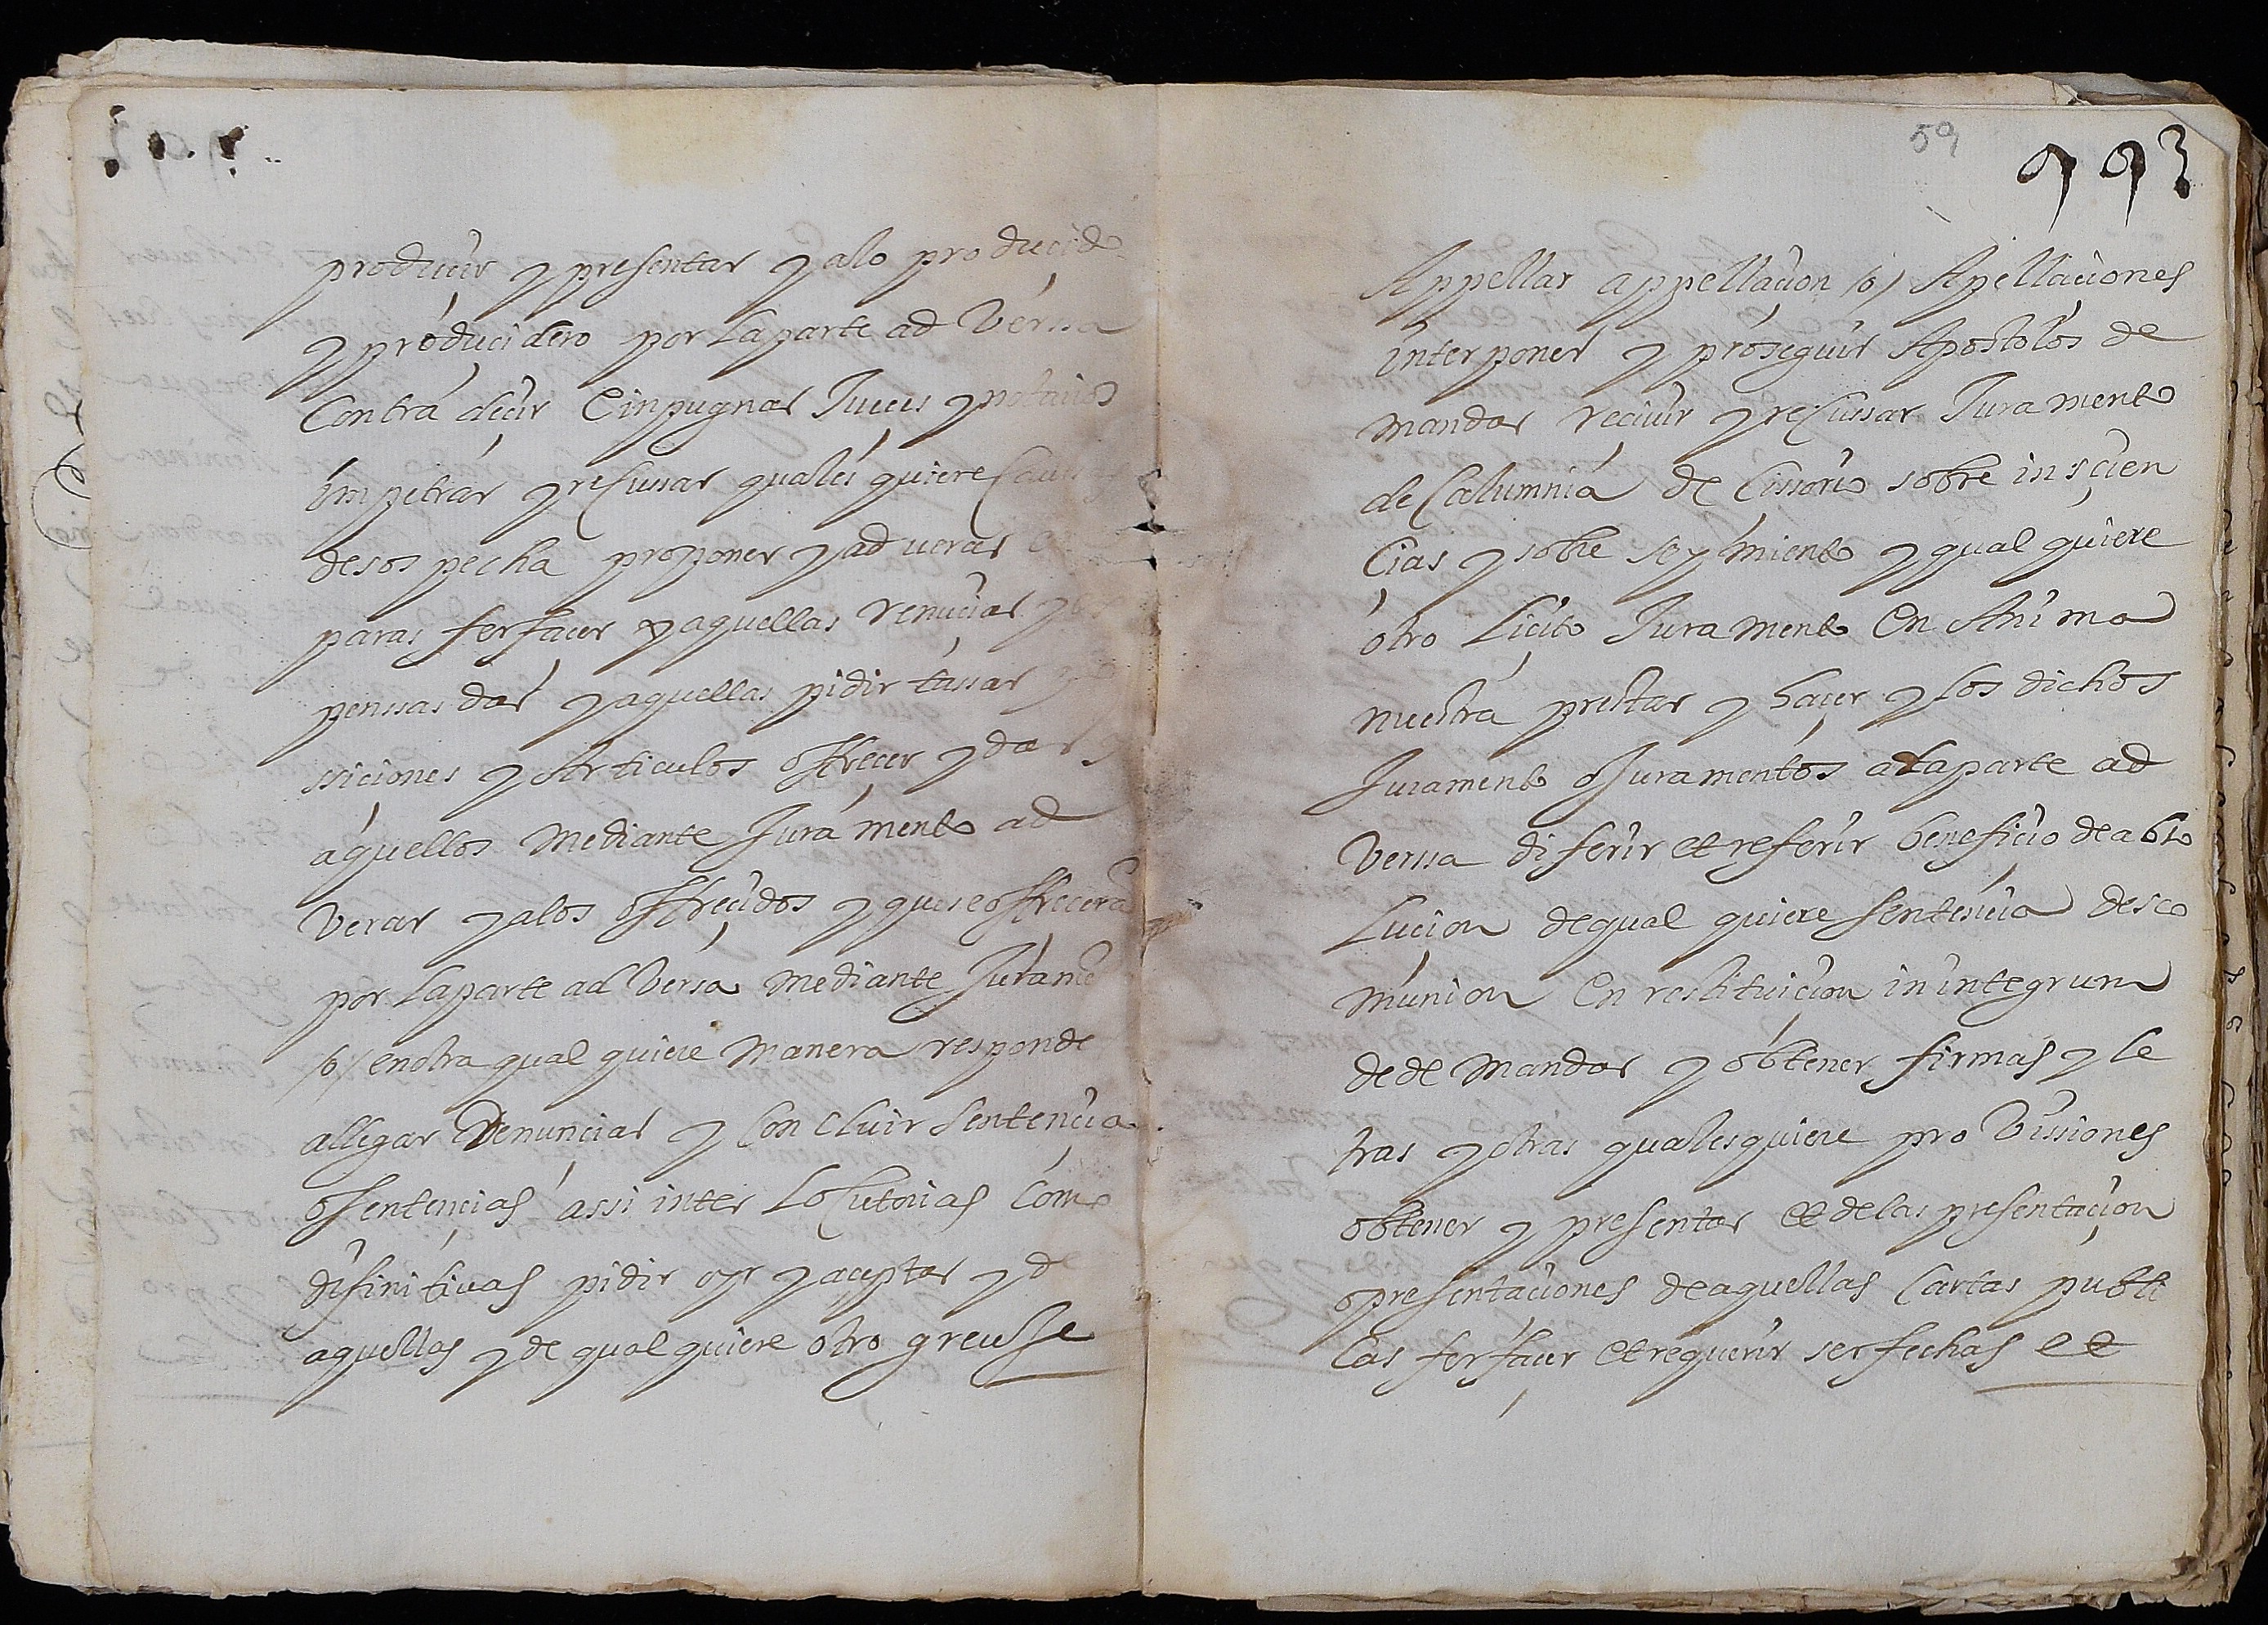 produçir y presentar y alo produçido
y produçidero por la parte ad Verssa
Contra deçir E inpugnar Jueçes y notarios
Impetrar y reCussar quales quiere Caussas
de sos pecha proponer y ad verar
paras ferfaçer y aquellas renuçiar
penssas dar y aquellas pidir tassar
ssiciones y Articulos offreçer y dar y
aquellos Mediante Jura mento ad
verar y alos offreçidos y que se offreçeran
por la parte ad Versa Mediante Jurame
/o/ en otra qual quiere Manera responde
allegar Denunçiar y ConCluir Sentençia
o sentençias assi inter LoCutorias Como
difinitivas pidir oyr y açeptar y de
aquellas y de qual quiere otro greusse
59
993
Appellar appellaçion /o/ Apellaciones
interponer y proseguir Apostolos de
mandar reçivir y reCussar Jura mento
de Calumnia de Cissorio sobre insçien
Cias y sobre seymiento y qual quiere
otro Liçito Jura mento En Anima
nuestra prestar y haçer y los dichos
Juramento o Juramentos a la parte ad
Verssa diferir et referir benefiçio de abso
Luçion de qual quiere Sentençia desco
munion En restituiçion in integrum
de de Mandar y obtener firmas y le
tras y otras qualesquiere pro Vissiones
obtener y presentar et de las presentaçion
o presentaçiones de aquellas Cartas publi
Cas ferfaçer et requerir ser fechas et